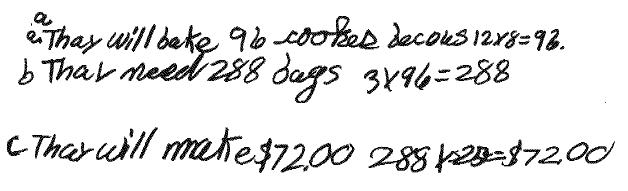 a
a. Thay will bake 96 cookes becaus 12x8=96.
b Thay need 288 bags 3x96=288
c Thay will make $72.00 288 x .25=$72.00